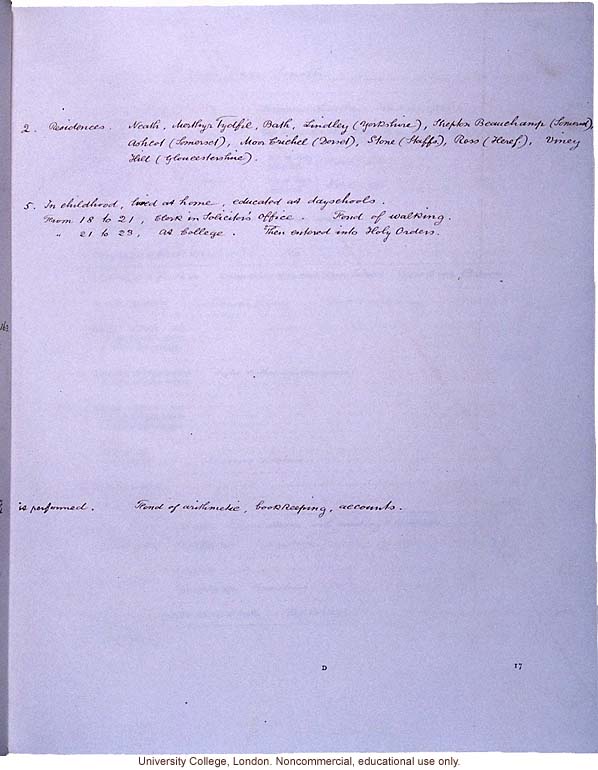 2. Residences. Neath, Merthyr Tydfil, Bath, Lindley (Yorkshire), Shepton Beauchamp (Somerset),
Ashcot (Somerset), Moor Crichel (Dorset), Stone (Staffs), Ross (Heref.), Viney
Hill (Gloucestershire).
5. In childhood, lived at home, educated at dayschools.
From 18 to 21, clerk in Solicitor's office. Fond of walking.
" 21 to 23, at College. Then entered into Holy Orders.
is performed. Fond of arithmetic, bookkeeping, accounts.
D 17
University College, London. Noncommercial, educational use only.